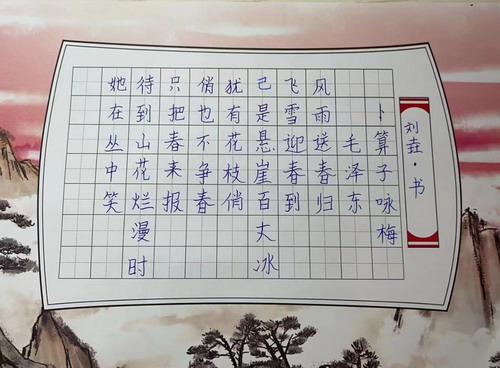 刘垚·书
卜算子咏梅
毛泽东
风雨送春归
飞雪迎春到
已是悬崖百丈冰
犹有花枝俏
俏也不争春
只把春来报
待到山花烂漫时
她在丛中笑